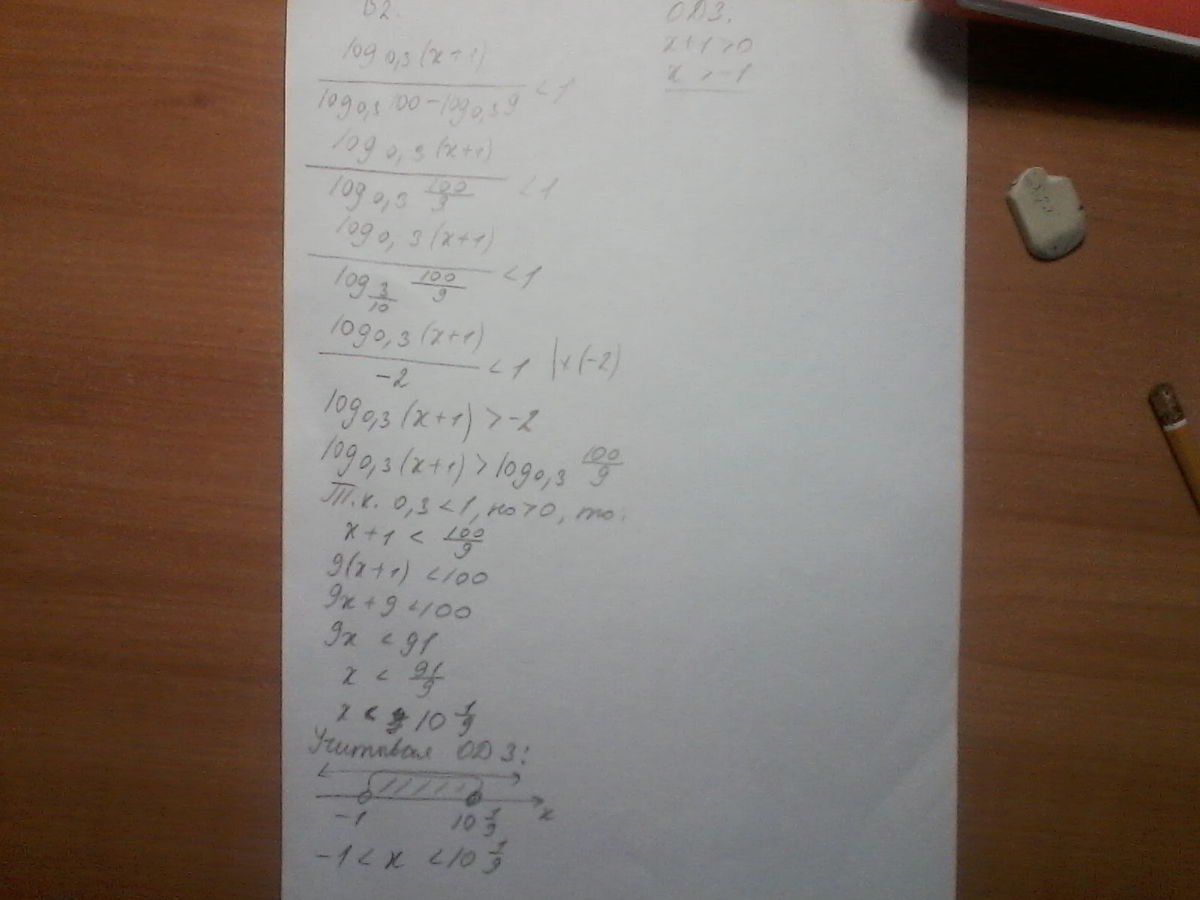 В2.
log₀,₃(x+1) / log₀,₃100 − log₀,₃9 < 1
log₀,₃(x+1) / log₀,₃ 100/9 < 1
log₀,₃(x+1) / log₃/₁₀ 100/9 < 1
log₀,₃(x+1) / −2 < 1 |×(−2)
log₀,₃(x+1) > −2
log₀,₃(x+1) > log₀,₃ 100/9
Т.к. 0,3 < 1, но > 0, то:
x+1 < 100/9
9(x+1) < 100
9x + 9 < 100
9x < 91
x < 91/9
x < 10 1/9
Учитывая ОДЗ:
−1 10 1/9 x
−1 < x < 10 1/9
ОДЗ.
x+1 > 0
x > −1